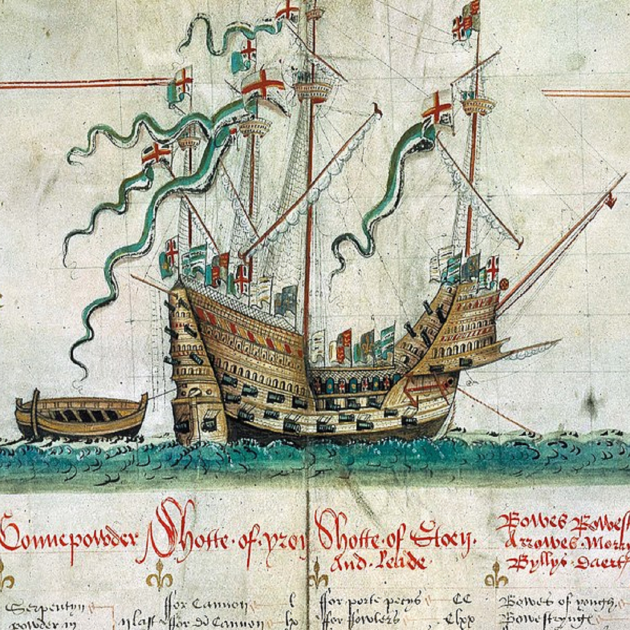 Gonnepowder
Shotte of yron
Shotte of Stoen
And Leade
Bowes Bowes
Arrowes Morr
Byllys Daert
Serpentyn
powder in
ffor Cannon
ffor porte pecys CC
ffor fowlers Clxx
Bowes of yough
Bowestrynge